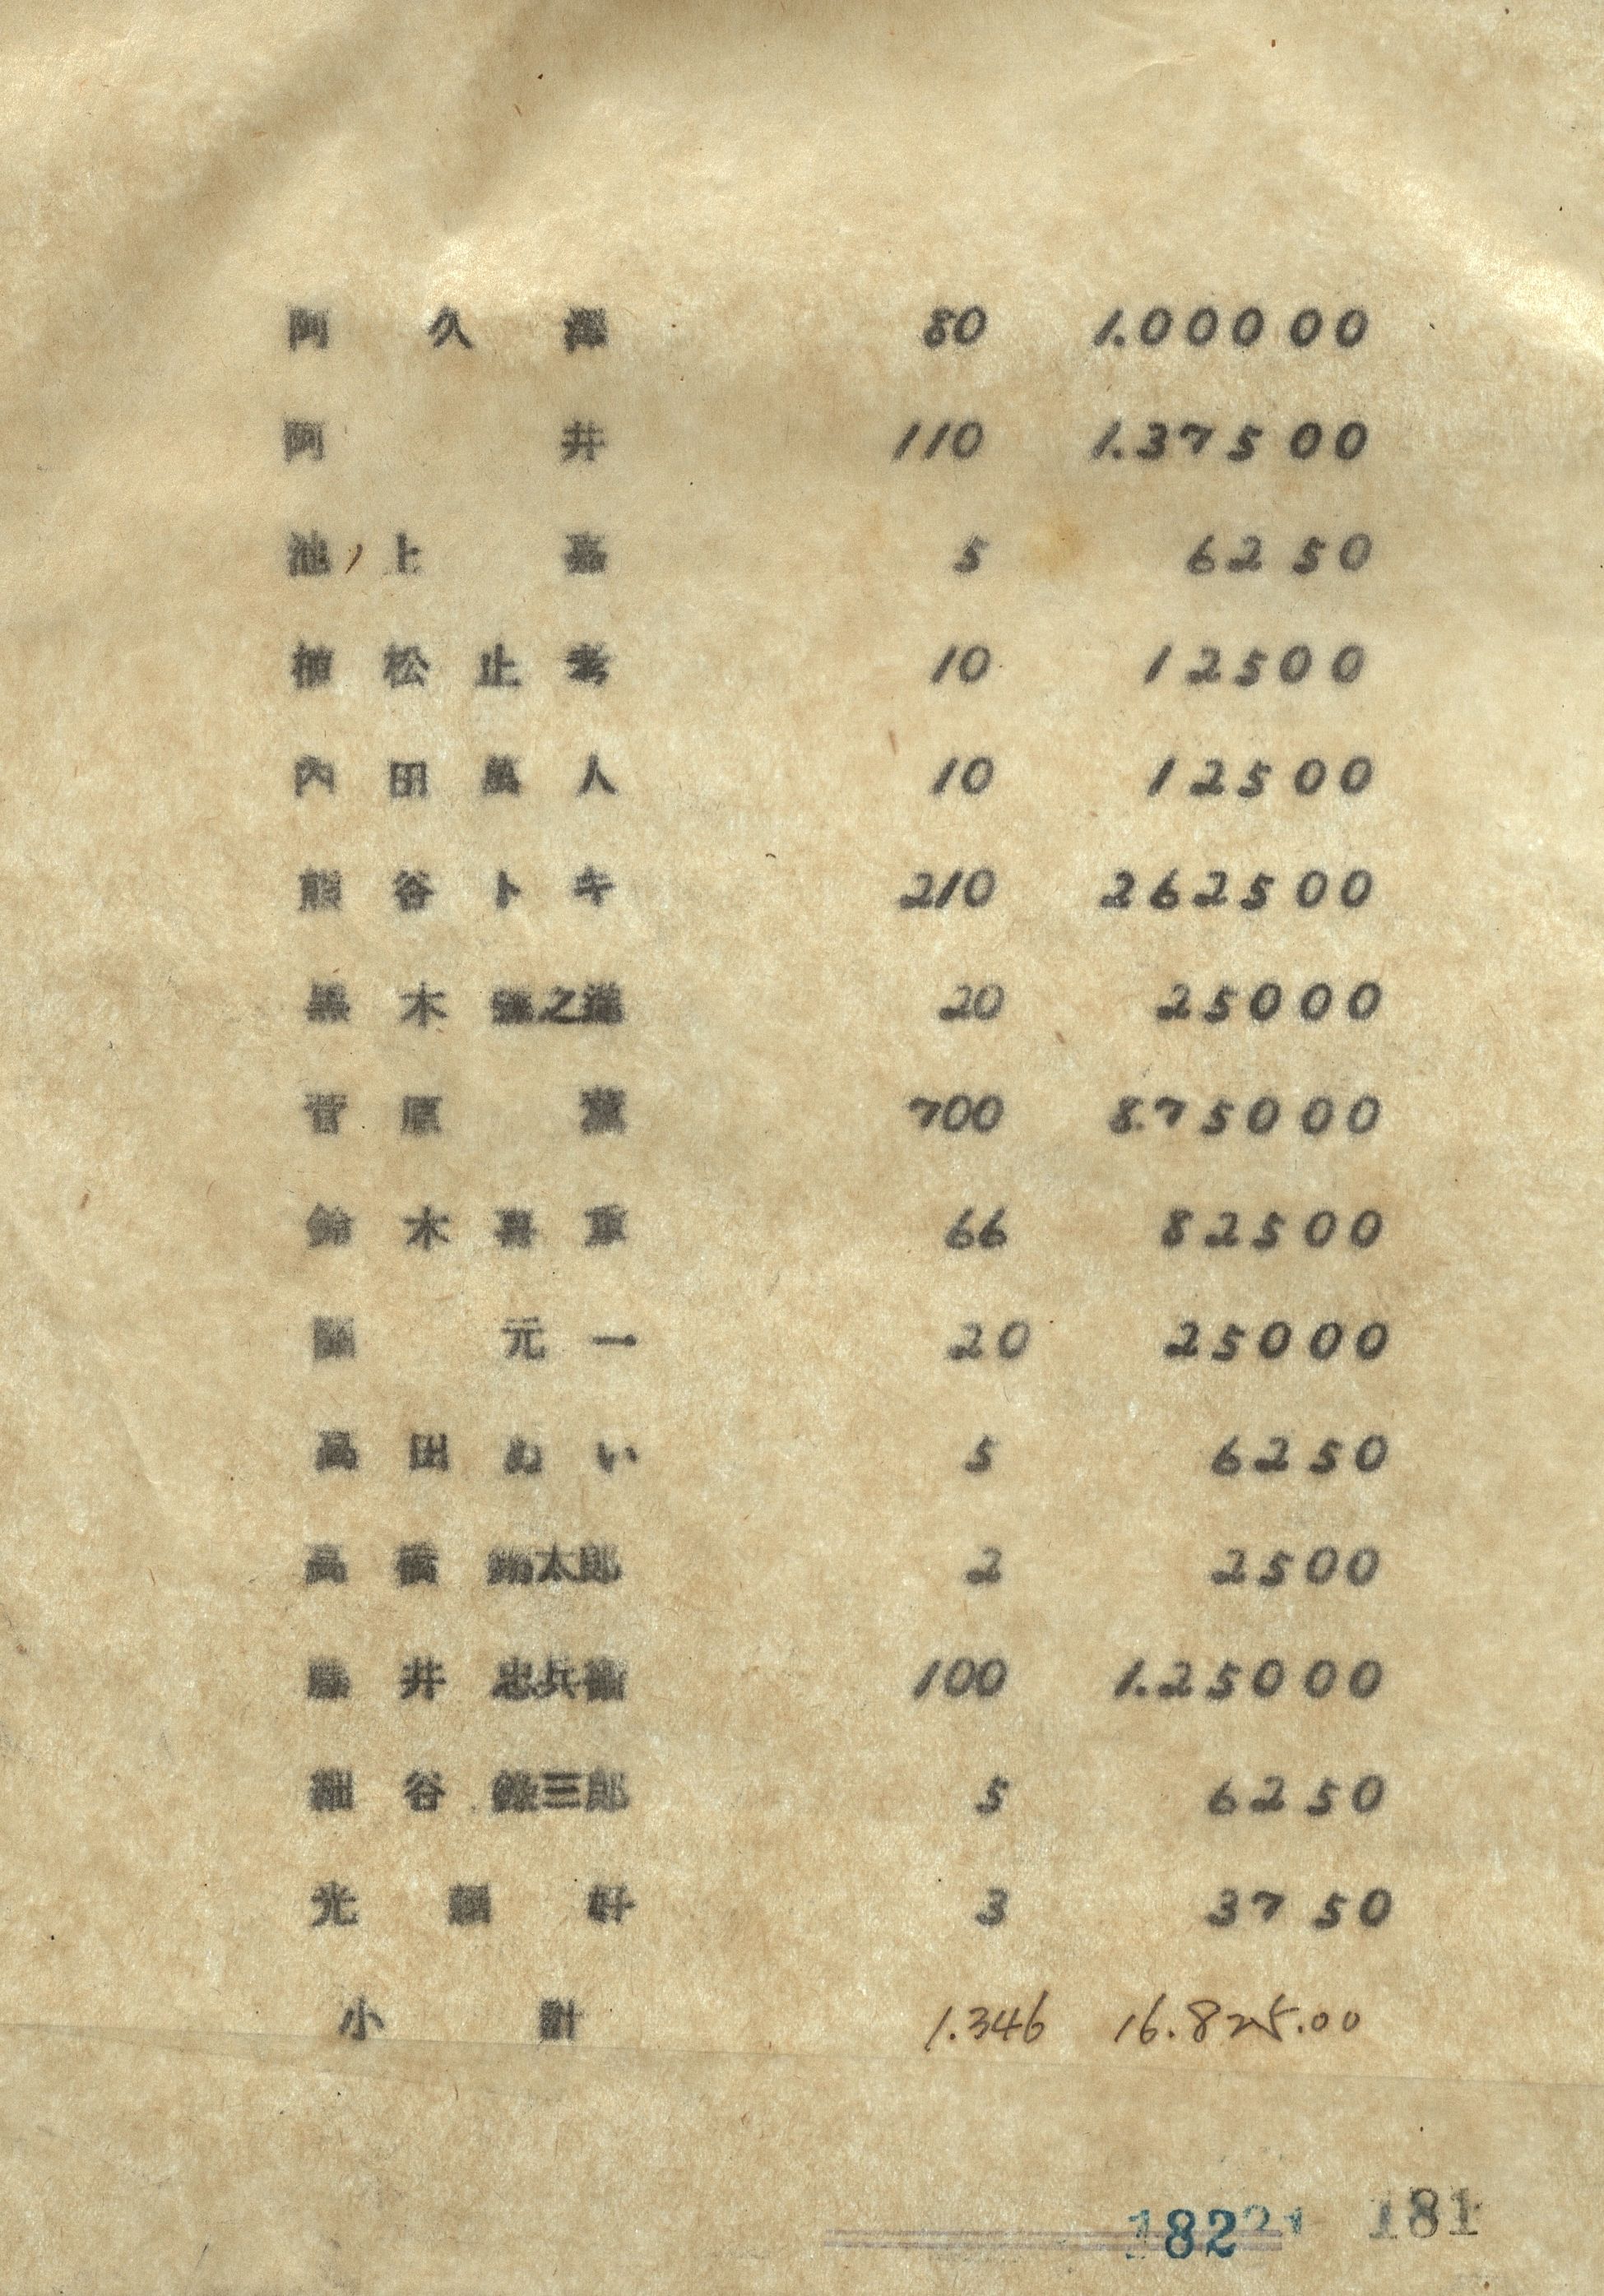 阿 久 澤 80 1.000 00
阿 井 110 1.375 00
池 上 5 62 50
植 松 止 考 10 125 00
内 田 萬 人 10 125 00
熊 谷 ト キ 210 2625 00
木 之 20 250 00
菅 原 700 8.750 00
鈴 木 喜 重 66 825 00
元 一 20 250 00
高 田 ぬ い 5 62 50
高 橋 太郎 2 25 00
藤 井 忠兵衞 100 1.250 00
細 谷 三郎 5 62 50
光 好 3 37 50
小 計 1.346 16.825.00
182 21 181